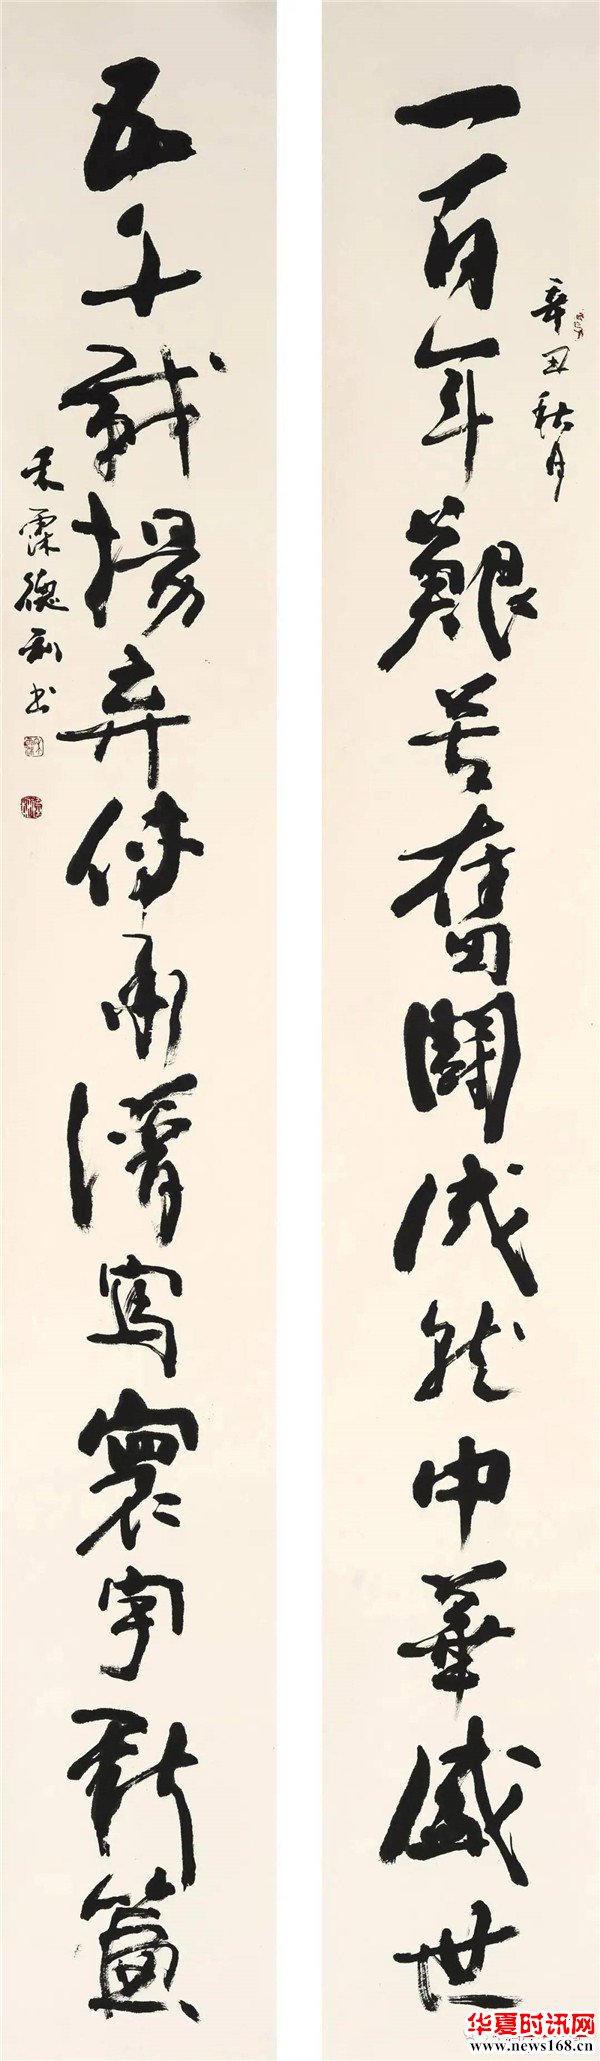 一百年艱苦奮鬪成就中華盛世
辛丑秋月
五千載揚弃傳承譜寫寰宇新篇
禾霖德利书
华夏时讯网
www.news168.cn